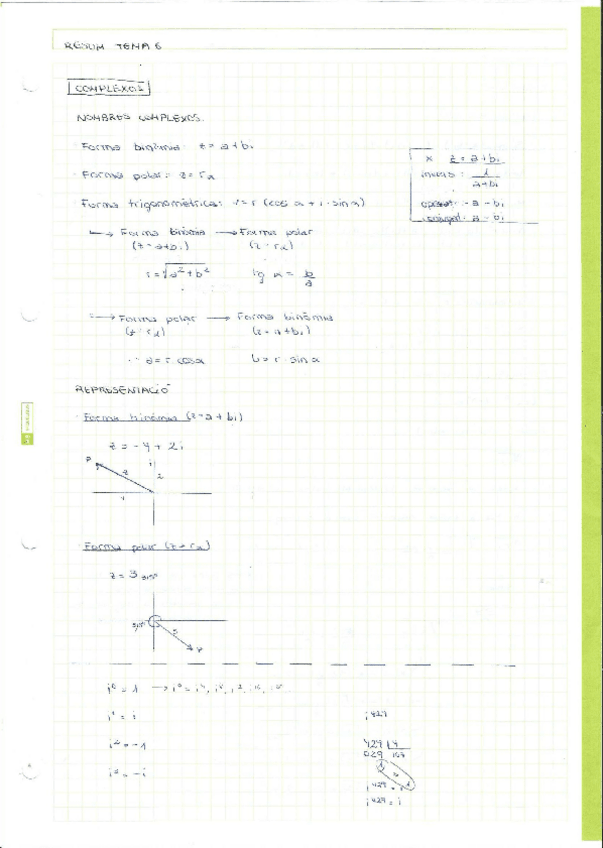 RESUM TEMA 6
COMPLEXOS
NOMBRES COMPLEXOS.
Forma binòmia: z = a + bi
Forma polar: z = rα
Forma trigonomètrica: z = r (cos α + i · sin α)
* z = a + bi
invers: 1/(a+bi)
oposat: -a - bi
conjugat: a - bi
→ Forma binòmia → Forma polar
(z = a + bi) (z = rα)
r = √a² + b² tg α = b/a
→ Forma polar → Forma binòmia
(z = rα) (z = a + bi)
a = r cos α b = r · sin α
REPRESENTACIÓ
Forma binòmia (z = a + bi)
z = -4 + 2i
P
z
i
2
4
Forma polar (z = rα)
z = 3 315º
315º
3
P
i⁰ = 1 → i⁰ = i⁴, i⁸, i¹², i¹⁶
i¹ = i
i² = -1
i³ = -i
i⁴²⁹
429 | 4
029 107
1
i⁴²⁹ = i¹
i⁴²⁹ = i